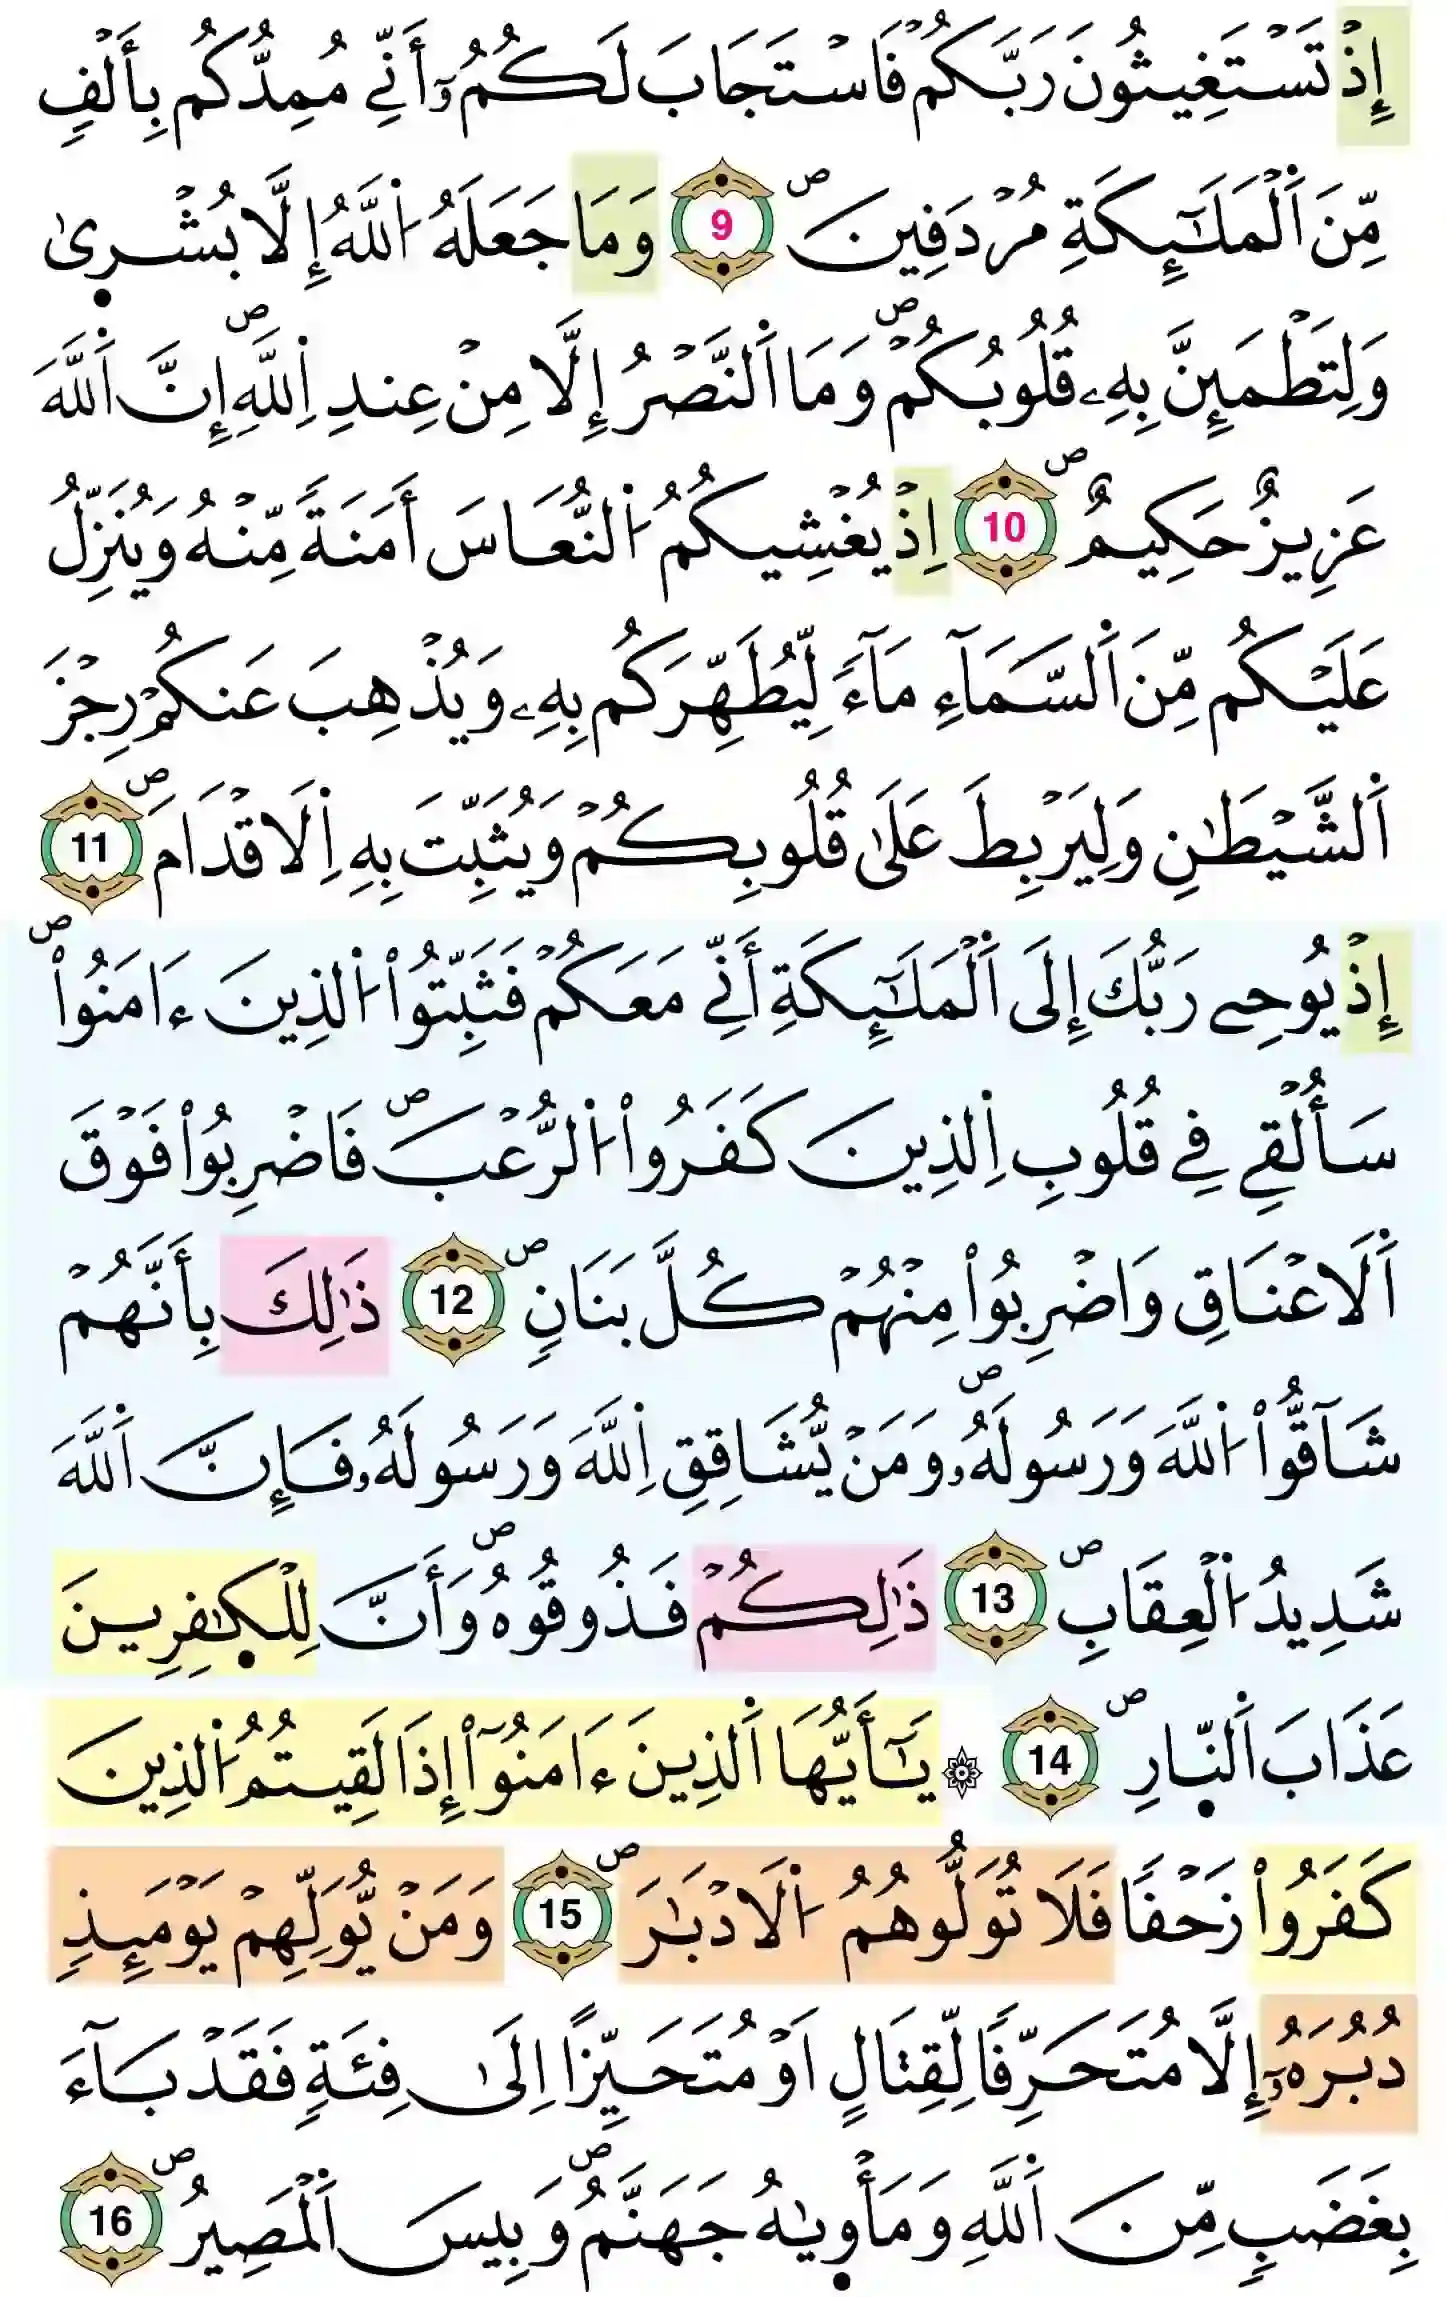 إِذْ تَسْتَغِيثُونَ رَبَّكُمْ فَاسْتَجَابَ لَكُمُۥٓ أَنِّے مُمِدُّكُم بِأَلْفٍ
مِّنَ اَ۬لْمَلَٰٓئِكَةِ مُرْدَفِينَۖ 9 وَمَا جَعَلَهُ اُ۬للَّهُ إِلَّا بُشْر۪يٰ
وَلِتَطْمَئِنَّ بِهِۦ قُلُوبُكُمْۖ وَمَا اَ۬لنَّصْرُ إِلَّا مِنْ عِندِ اِ۬للَّهِۖ إِنَّ اَ۬للَّهَ
عَزِيزٌ حَكِيمٌۖ 10 اِذْ يُغْشِيكُمُ اُ۬لنُّعَاسَ أَمَنَةً مِّنْهُ وَيُنَزِّلُ
عَلَيْكُم مِّنَ اَ۬لسَّمَآءِ مَآءً لِّيُطَهِّرَكُم بِهِۦ وَيُذْهِبَ عَنكُمْ رِجْزَ
اَ۬لشَّيْطَٰنِ وَلِيَرْبِطَ عَلَىٰ قُلُوبِكُمْ وَيُثَبِّتَ بِهِ اِ۬لَاقْدَامَۖ 11
إِذْ يُوحِے رَبُّكَ إِلَى اَ۬لْمَلَٰٓئِكَةِ أَنِّے مَعَكُمْ فَثَبِّتُواْ اُ۬لذِينَ ءَامَنُواْۖ
سَأُلْقِے فِے قُلُوبِ اِ۬لذِينَ كَفَرُواْ اُ۬لرُّعْبَۖ فَاضْرِبُواْ فَوْقَ
اَ۬لَاعْنَاقِ وَاضْرِبُواْ مِنْهُمْ كُلَّ بَنَانٍۖ 12 ذَٰلِكَ بِأَنَّهُمْ
شَآقُّواْ اُ۬للَّهَ وَرَسُولَهُۥۖ وَمَنْ يُّشَاقِقِ اِ۬للَّهَ وَرَسُولَهُۥ فَإِنَّ اَ۬للَّهَ
شَدِيدُ اُ۬لْعِقَابِۖ 13 ذَٰلِكُمْ فَذُوقُوهُۖ وَأَنَّ لِلْكٰ۪فِرِينَ
عَذَابَ اَ۬لنّ۪ارِۖ 14 ۞ يَٰٓأَيُّهَا اَ۬لذِينَ ءَامَنُوٓاْ إِذَا لَقِيتُمُ اُ۬لذِينَ
كَفَرُواْ زَحْفًا فَلَا تُوَلُّوهُمُ اُ۬لَادْبَٰرَۖ 15 وَمَنْ يُّوَلِّهِمْ يَوْمَئِذٍ
دُبُرَهُۥٓ إِلَّا مُتَحَرِّفًا لِّقِتَالٍ اَوْ مُتَحَيِّزًا اِلَىٰ فِئَةٍ فَقَدْ بَآءَ
بِغَضَبٍ مِّنَ اَ۬للَّهِ وَمَأْو۪يٰهُ جَهَنَّمُۖ وَبِيسَ اَ۬لْمَصِيرُۖ 16